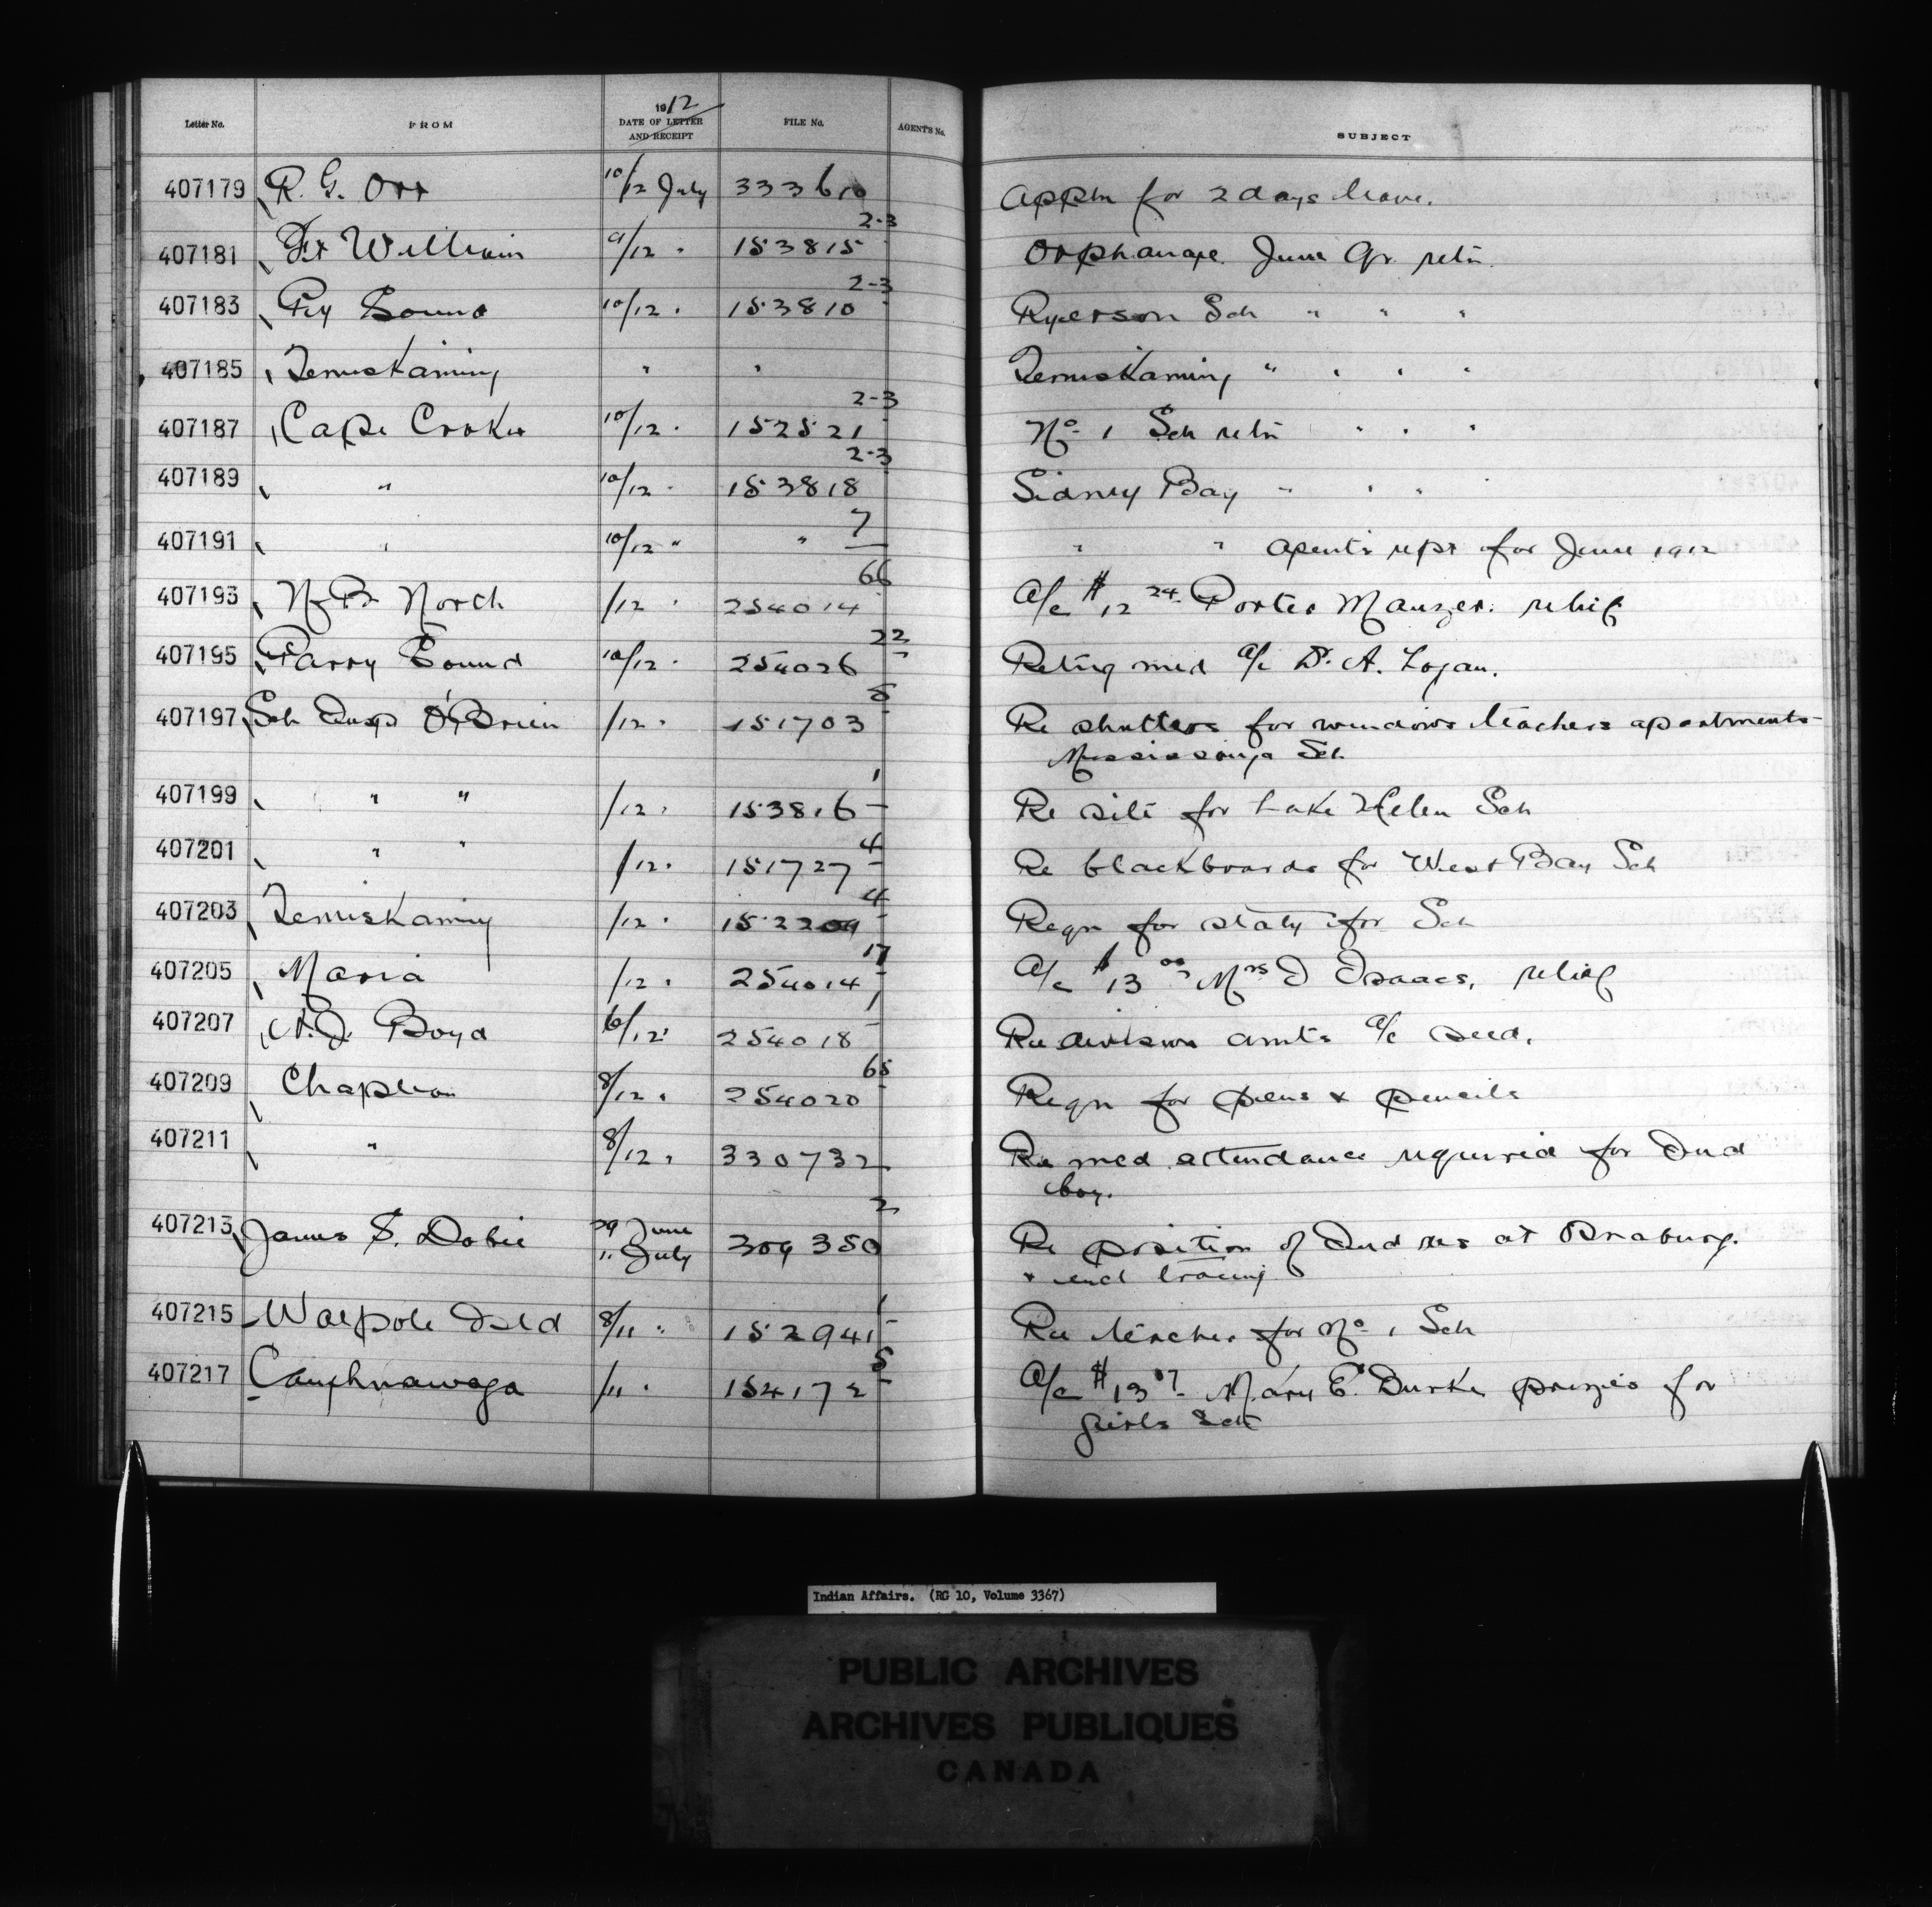 Letter No. FROM 1912 DATE OF LETTER AND RECEIPT FILE No. AGENT'S No. SUBJECT
407179 R. G. Orr 10/12 July 333610 Appln for 2 days leave.
407181 Ft William 9/12 " 153815 2-3 Orphanage June Qr. retn
407183 Pry Sound 10/12 " 153810 2-3 Ryerson Sch " " "
407185 Temiskaming " " Temiskaming " " " "
407187 Cape Croker 10/12 " 152521 2-3 No 1 Sch retn " " "
407189 " 10/12 " 153818 2-3 Sidney Bay " " " "
407191 " 10/12 " " 7 " " Agent's rept for June 1912
407193 N-B- North /12 " 254014 66 A/c $12 24 Porter Manzer. relief
407195 Parry Sound 10/12 " 254026 22 Retng med a/c Dr. A. Logan.
407197 Sch Insp O'Brien /12 " 151703 5 Re shutters for windows teachers apartments
Mississauga Sch
407199 " " /12 " 153816 1 Re site for Lake Helen Sch
407201 " " /12 " 151727 4 Re blackboards for West Bay Sch
407203 Temiskaming /12 " 152209 4 Reqn for staty for Sch
407205 Maria /12 " 254014 17 A/c $13 00 Mrs D Isaacs, relief
407207 A. J. Boyd 6/12 " 254018 1 Re division amts a/c seed.
407209 Chapleau 8/12 " 254020 65 Reqn for pens & pencils
407211 " 8/12 " 330732 Re med attendance required for Ind
boy.
407213 James S. Dobie 29 June 309350 2 Re position of Ind res at
11 July & encl tracing
407215 Walpole Isld 8/11 " 152941 1 Re teacher for No 1 Sch
407217 Caughnawaga /11 " 154172 5 A/c $13 07 Mary E. Burke prizes for
girls Sch
Indian Affairs. (RG 10, Volume 3367)
PUBLIC ARCHIVES
ARCHIVES PUBLIQUES
CANADA